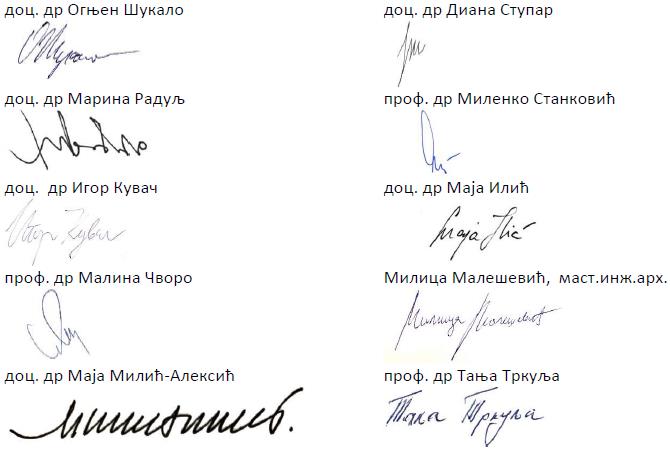 доц. др Огњен Шукало
доц. др Диана Ступар
доц. др Марина Радуљ
проф. др Миленко Станковић
доц. др Игор Кувач
Игор Кувач
доц. др Маја Илић
Маја Илић
проф. др Малина Чворо
Милица Малешевић, маст.инж.арх.
Милица Малешевић
доц. др Маја Милић-Алексић
проф. др Тања Тркуља
Тања Тркуља